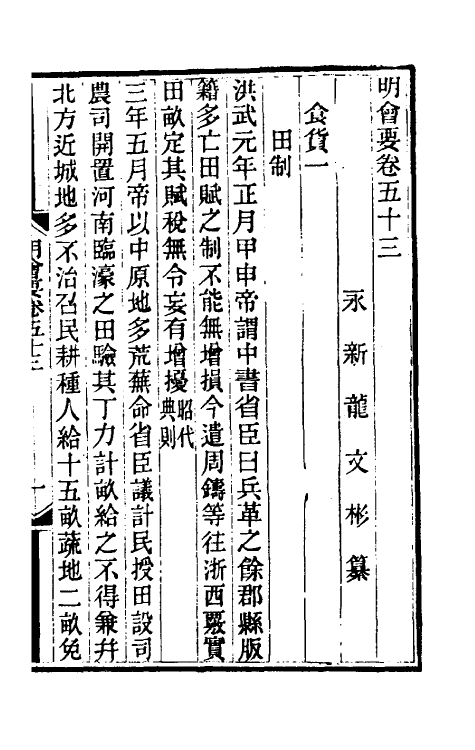 明會要卷五十三
永新龍文彬纂
食貨一
田制
洪武元年正月甲申帝謂中書省臣曰兵革之餘郡縣版
籍多亡田賦之制不能無增損今遣周鑄等往浙西覈實
田畝定其賦稅無令妄有增擾昭代典則
三年五月帝以中原地多荒蕪命省臣議計民授田設司
農司開置河南臨濠之田驗其丁力計畝給之不得兼幷
北方近城地多不治召民耕種人給十五畝蔬地二畝免
明會要卷五十三
一